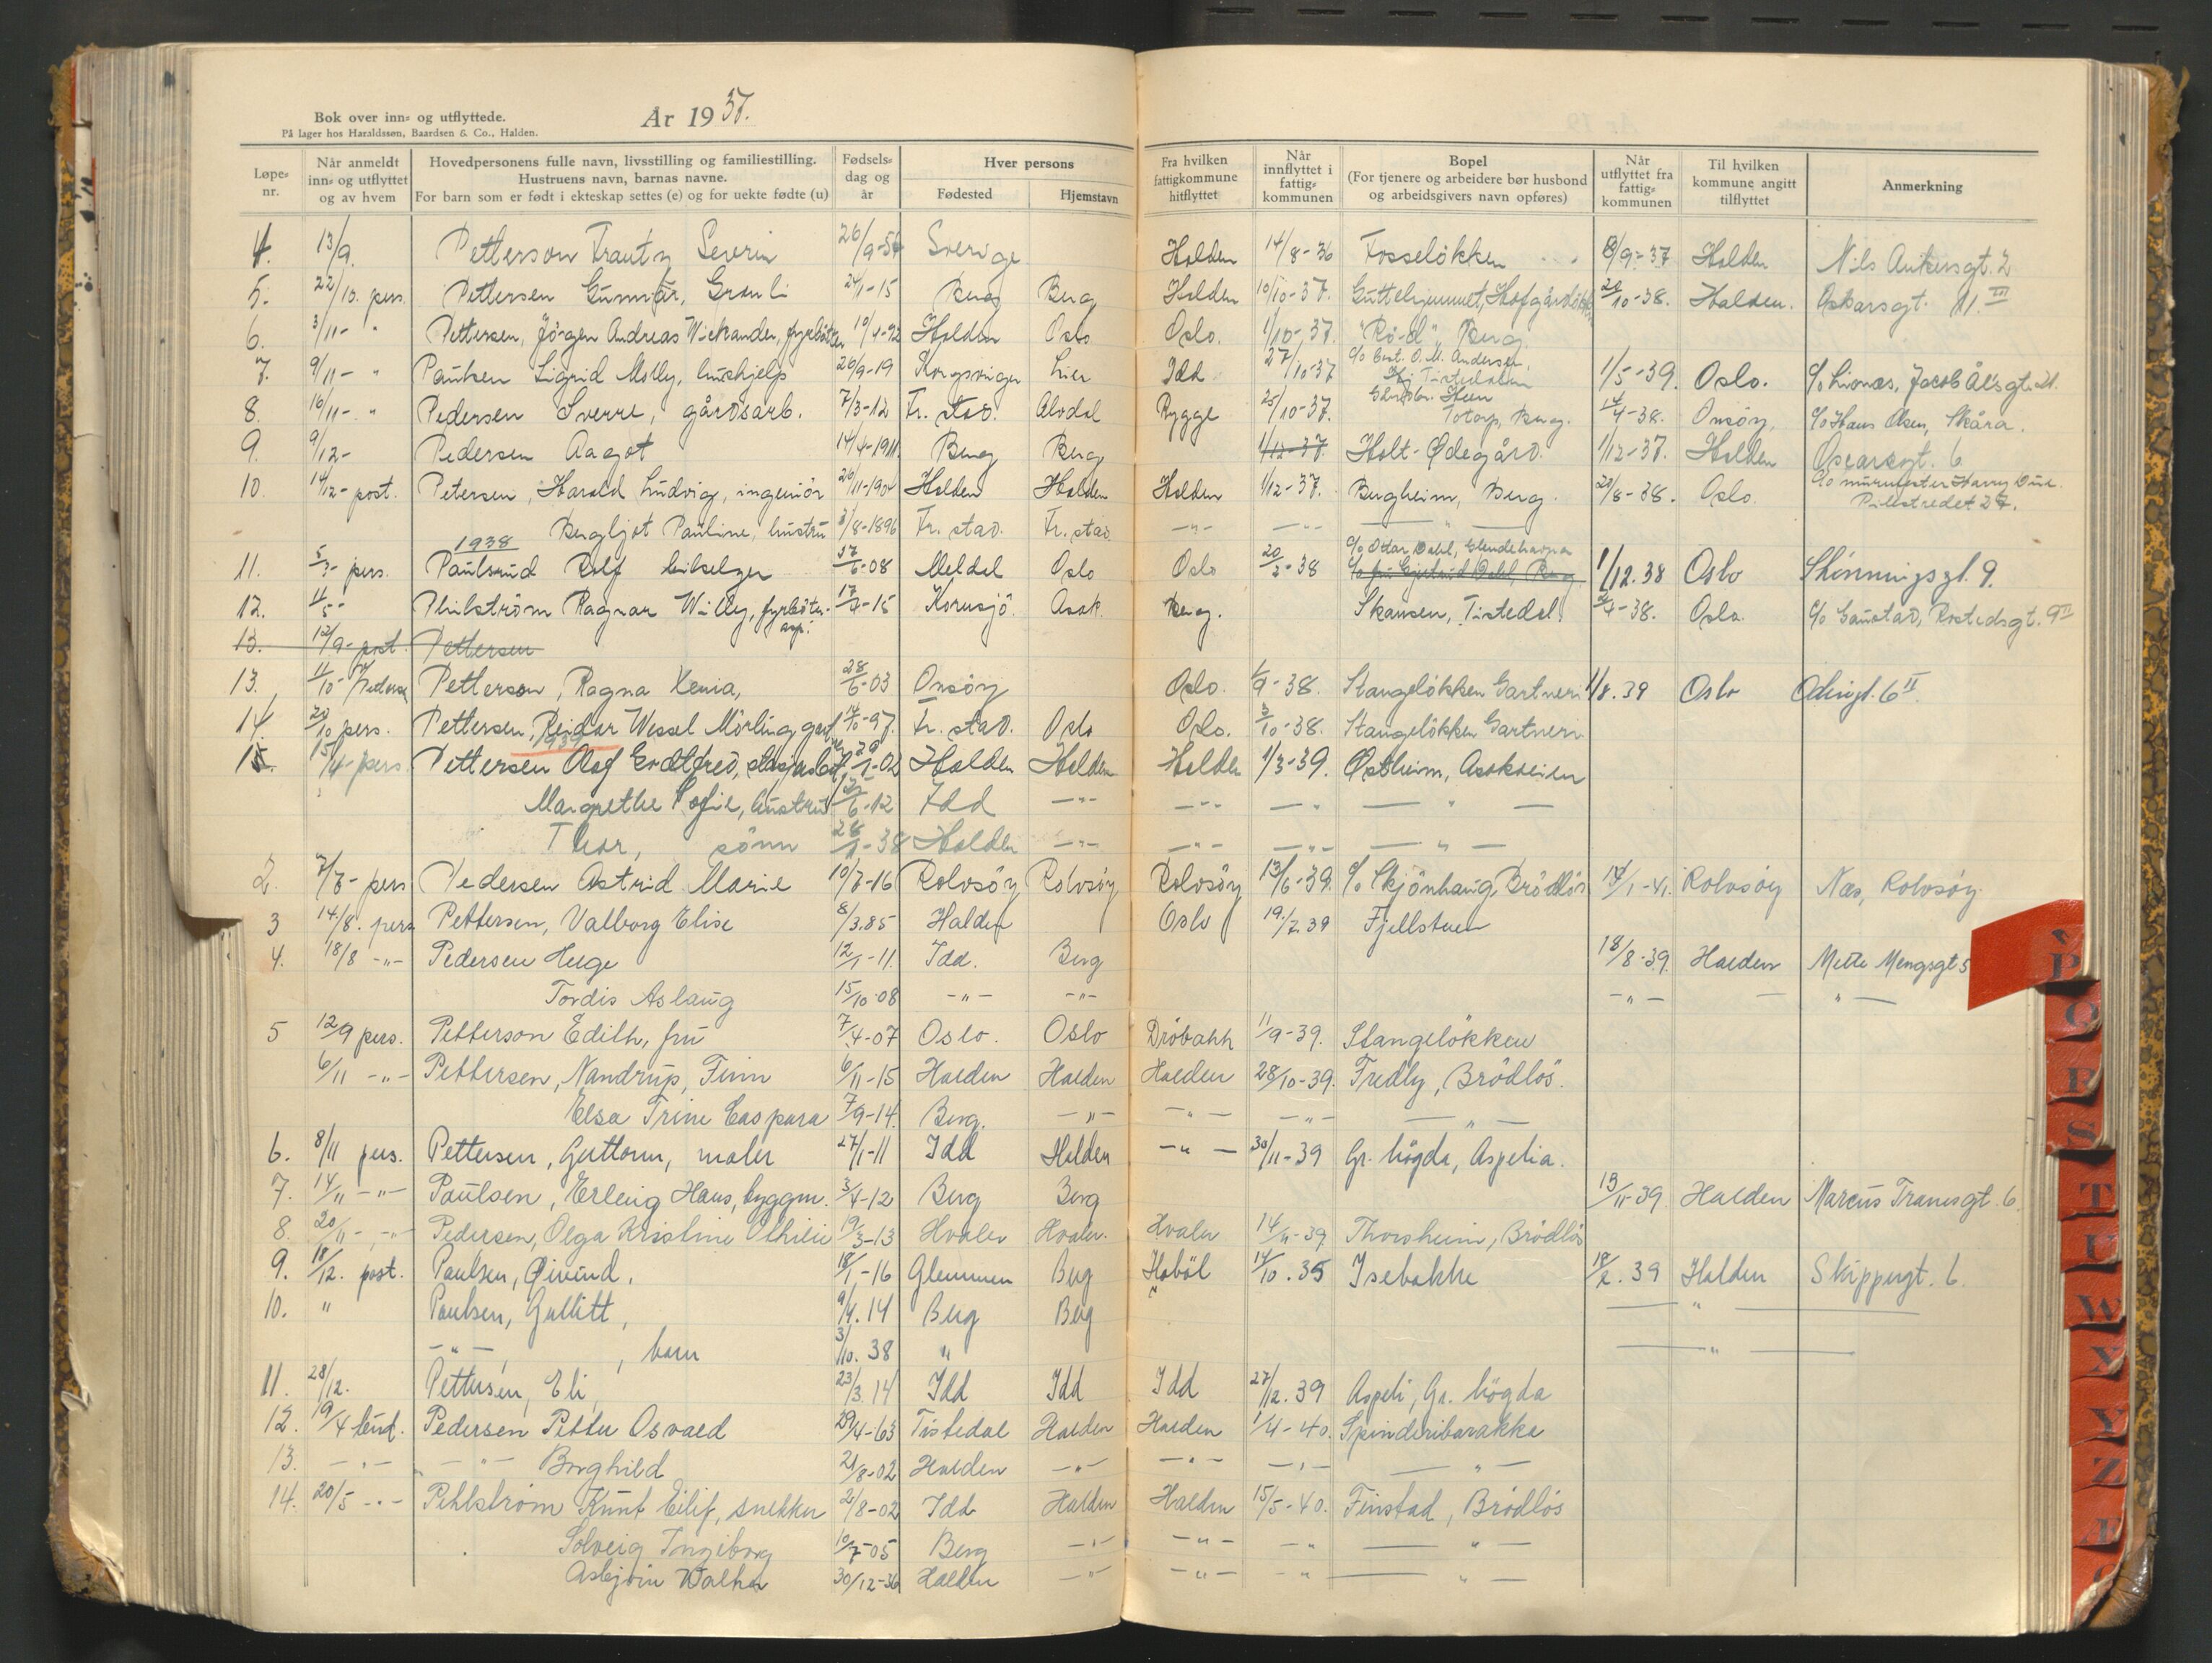 Bok over inn- og utflyttede.
På lager hos Haraldssøn, Baardsen & Co., Halden.
År 1937.
Løpe-nr. Når anmeldt inn- og utflyttet og av hvem Hovedpersonens fulle navn, livsstilling og familiestilling. Hustruens navn, barnas navne. For barn som er født i ekteskap settes (e) og for uekte fødte (u) Fødsels-dag og år Hver persons Fødested Hjemstavn Fra hvilken fattigkommune hitflyttet Når innflyttet i fattig-kommunen Bopel (For tjenere og arbeidere bør husbond og arbeidsgivers navn opføres) Når utflyttet fra fattig-kommunen Til hvilken kommune angitt tilflyttet Anmerkning
4. 13/9 Petterson Severin 26/9-54 Sverige Halden 14/8-36 Fosseløkken 8/9-37 Halden Nils Ankersgt. 2
5. 22/10. pers. Pettersen Gunnar, Granli 24/1-15 Berg Berg Halden 10/10-37. Guttehjemmet, 20/10-38. Halden. Oskarsgt. 11 III
6. 3/11- " Pettersen, Jörgen Andreas Wickander, fyrböter 10/1-92 Halden Oslo Oslo. 1/10-37. "Rö-d", Berg.
7. 9/11- " Paulsen Sigrid Molly, hushjelp 26/9-19 Kongsvinger Lier Idd 27/10-37 c/o O. M. Andersen, Tistedalen 1/5-39. Oslo. c/o Lionæs, Jacob Ålsgt. 21.
8. 16/11- " Pedersen Sverre, gårdsarb. 7/3-12 Fr. stad. Alvdal Rygge 25/10-37. Torp, Berg. 14/4-38. Onsöy. c/o Hans Olsen, Skåra.
9. 9/12- Pedersen Aagot 14/4-1911. Berg Berg 1/12-37 Holt-Ødegård. 1/12-37. Halden Oscarsgt. 6
10. 14/12- post. Petersen, Harald Ludvig, ingeniör 26/11-1901 Halden Halden Halden 1/12-37. Bergheim, Berg. 29/8-38. Oslo. c/o murmester Harry Due. Pilestredet 27.
Bergljot Pauline, hustru 3/8-1896 Fr. stad. Fr. stad. -"- -"- -"-
1938
11. 5/3- pers. Paulsrud Rolf 27/6-08 Meldal Oslo Oslo 20/2-38 c/o Ottar Dahl, 1/12.38 Oslo Skönningsgt. 9.
12. 4/5- Philström Ragnar Willy, fyrböter-asp. 17/4-15 Kornsjö. Asak Berg. Skansen, Tistedal. 4-38. Oslo. c/o Gaustad, Rostedsgt. 9 II
13. 12/9- post. Pettersen
13. 11/10- Petterson, Ragna Xenia, 28/6-03 Onsöy Oslo. 1/9-38. Stangelökken Gartneri 1/8.39 Oslo Odinsgt. 6 II.
14. 20/10 pers. Pettersen, Reidar Wessel Mörling, 14/10-97. Fr. stad. Oslo Oslo. 3/10-38. Stangelökken Gartneri
1939
15. 15/4 pers. Pettersen Olaf Godtfred, 29/1-02 Halden Halden Halden 1/3-39. Østheim, Asakveien
Margrethe Sofie, hustru 6-12 Idd -"- -"- -"- -"-
Thor, sönn 28/1-38 Halden -"- -"- -"- -"-
2. 7/7- pers Pedersen Astrid Marie 10/7-16 Rolvsöy Rolvsöy Rolvsöy 13/6-39. c/o Skjönhaug, Brödlös 14/1-41. Rolvsöy Næs, Rolvsöy.
3 14/8. pers Pettersen, Valborg Elise 8/3.85 Halden Oslo 19/7.39 Fjellstuen
4. 18/8 -"- Pedersen Helge 12/1-11. Idd. Berg 18/8-39. Halden Mette Mengsgt 5
Tordis Aslaug 15/10-08 -"- -"- -"- -"-
5 12/9 pers. Petterson Edith, fru 7/4-07 Oslo. Oslo Dröbakk 11/9-39. Stangelökken
6/11 -"- Pettersen, Nandrup, Finn 6/11-15 Halden Halden Halden 28/10-39. Fredly, Brödlös.
Elsa Trine Caspara 7/9-14. Berg. -"- -"- -"- -"-
6. 8/11 pers. Pettersen, Guttorm, maler 27/1-11 Idd Halden -"- 30/11-39 Gr. högda, Aspelia.
7. 14/11 -"- Paulsen, Erling Hans, byggm. 3/4-12 Berg Berg 13/11-39 Halden Marcus Tranesgt. 6.
8. 20/11 -"- Pedersen, Olga Kristine Othilie 19/3-13 Hvaler Hvaler. Hvaler 14/11-39 Thorsheim, Brödlös
9. 18/12. post. Paulsen, Øivind, 18/1-16 Glemmen Berg Hobøl 14/10.35 Isebakke 18/2.39 Halden Skippergt. 6.
10. " Paulsen, , 9/4.14 Berg Berg -"-
-"-, , barn 3/10.38 " -"-
11. 28/12. Pettersen, Eli, 23/3.14 Idd Idd Idd 27/12.39 Aspeli, Gr. högda
12. 19/4 lend. Pedersen Petter Osvald 29/4-63 Tistedal Halden Halden 1/4-40. Spinderibarakka
13. -"- -"- Borghild 21/8-02 Halden -"- -"- -"- -"-
14. 20/5 -"- Pehlström Knut Eilif, snekker 2/8-02 Idd Halden Halden 15/5-40. Finstad, Brödlös
Solveig Ingeborg 10/7-05 Berg -"- -"- -"- -"-
Asbjörn Walter 30/12-36 Halden -"- -"- -"- -"-
P
O
R
S
T
U
W
X
Y
Z
Æ